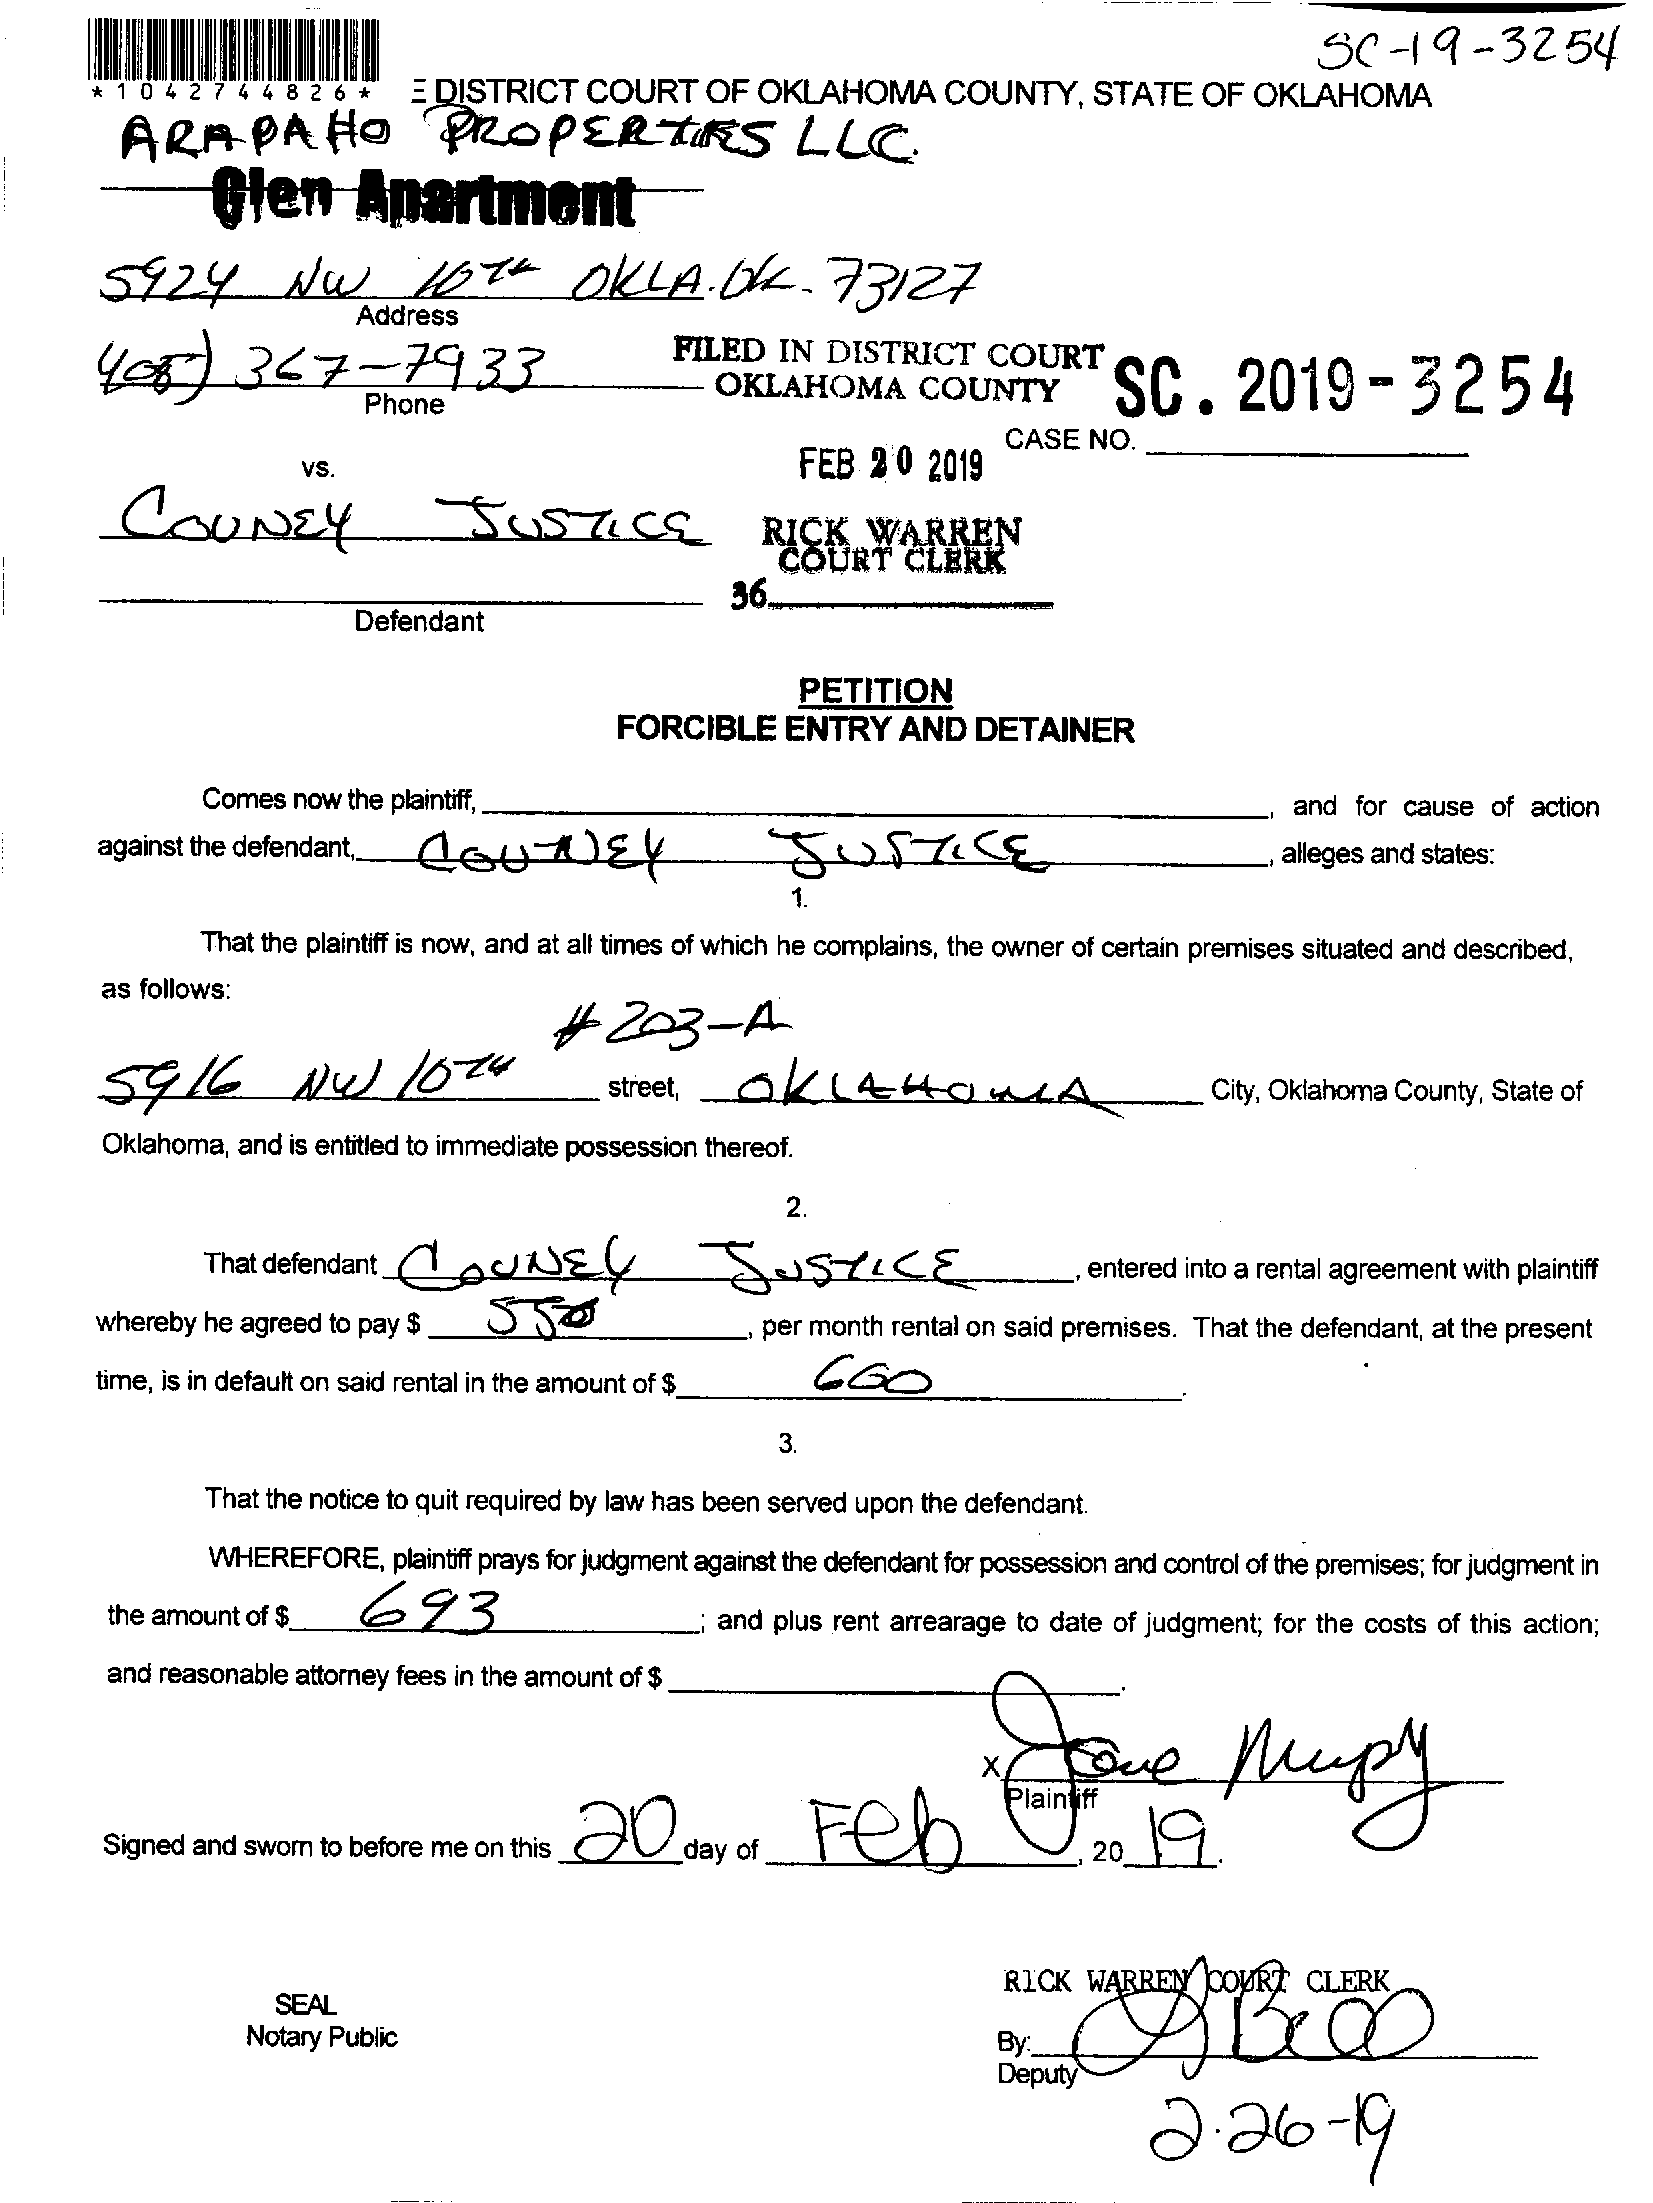 SC-19-3254
*1042744826*
E DISTRICT COURT OF OKLAHOMA COUNTY, STATE OF OKLAHOMA
ARAPAHO PROPERTIES LLC.
Glen Apartment
5924 NW 10TH OKLA. OK. 73127
Address
405) 367-7933
Phone
FILED IN DISTRICT COURT
OKLAHOMA COUNTY
SC. 2019-3254
CASE NO.
FEB 20 2019
vs.
COUNEY JUSTICE
RICK WARREN
COURT CLERK
36
Defendant
PETITION
FORCIBLE ENTRY AND DETAINER
Comes now the plaintiff, , and for cause of action
against the defendant, COUNEY JUSTICE , alleges and states:
1.
That the plaintiff is now, and at all times of which he complains, the owner of certain premises situated and described,
as follows:
# 203-A
5916 NW 10TH street, OKLAHOMA City, Oklahoma County, State of
Oklahoma, and is entitled to immediate possession thereof.
2.
That defendant COUNEY JUSTICE , entered into a rental agreement with plaintiff
whereby he agreed to pay $ 550 , per month rental on said premises. That the defendant, at the present
time, is in default on said rental in the amount of $ 660 .
3.
That the notice to quit required by law has been served upon the defendant.
WHEREFORE, plaintiff prays for judgment against the defendant for possession and control of the premises; for judgment in
the amount of $ 693 ; and plus rent arrearage to date of judgment; for the costs of this action;
and reasonable attorney fees in the amount of $ .
X
Plaintiff
Signed and sworn to before me on this 20 day of Feb , 20 19.
RICK WARREN COURT CLERK
SEAL
Notary Public
By:
Deputy
2-26-19